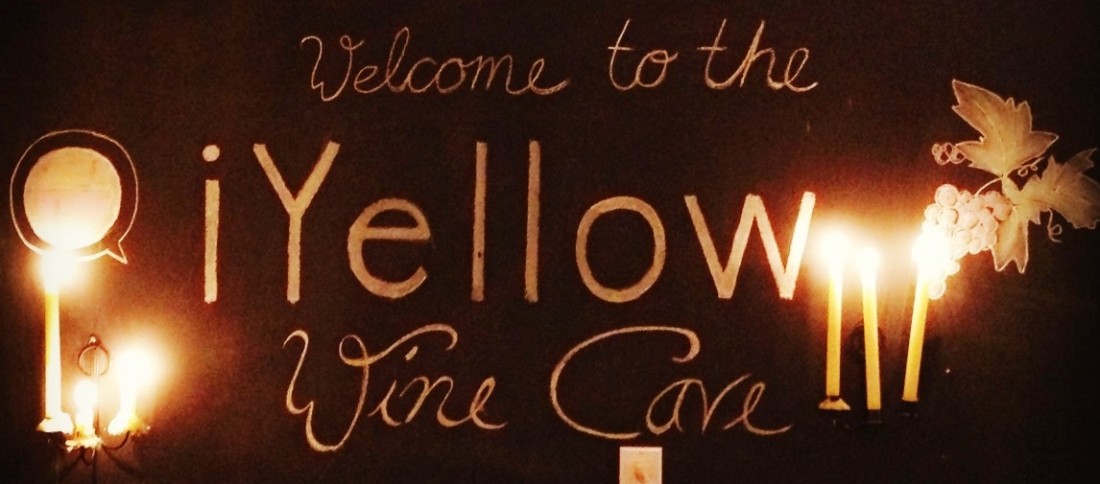 Welcome to the
iYellow
Wine Cave